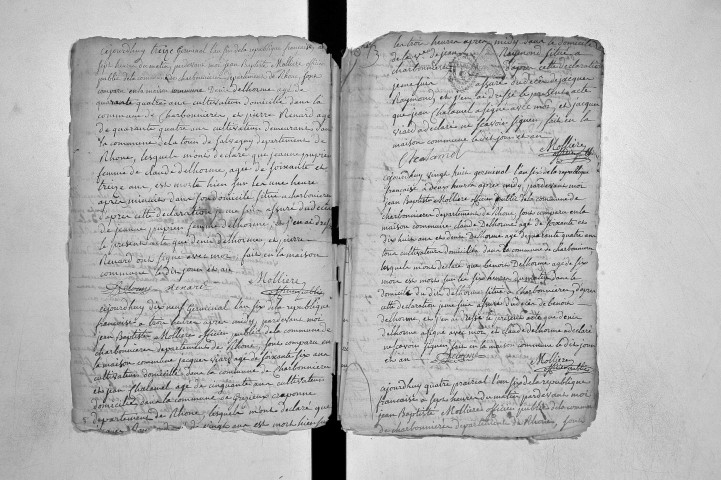 cejourdhuy treize germinal l'an six de la republique francaise a
sept heures du matin pardevant moi jean baptiste Molliere officier
public de la commune de charbonnieres departement du Rhone, sont
comparu en la maison commune denis delhorme agé de
quarante quatre ans cultivateur domicilié dans la
commune de charbonnieres, et pierre Renard agé
de quarante quatre ans cultivateur demeurant dans
la commune de la tour de salvagny departement du
Rhone, lesquels mont declaré que jeanne
femme de claude delhorme, agée de soixante et
treize ans, est morte hier sur les une heure
après minuit dans son domicile sitné a charbonnieres
d'après cette declaration je me suis assuré du décès
de jeanne femme delhorme, et j'en ai dressé
le present acte que denis delhorme, et pierre
Renard ont signé avec moi, fait en la maison
commune le dit jour et an
Delorme Renard Molliere
cejourdhuy dix neuf Germinal l'an six de la republique
francaise a heures après midy, pardevant moi
jean Baptiste Molliere officier public de la commune de
charbonnieres departement du Rhone, sont comparu en
la maison commune jacques viard agé de soixante six ans
cultivateur domicilié dans la commune de Charbonnieres
et jean Chalamel agé de cinquante ans cultivateur
domicilié dans la commune de
departement du Rhone, lesquels mont declaré que
de vingt ans est mort hier sur
les trois heures après midy dans le domicile
de la v.ve de jean Raymond sitné a
charbonnieres d'après cette declaration
je me suis assuré du décès de jacques
Raymond, et j'en ai dressé le present acte
que jean chalamel a signé avec moi, et jacques
viard a declaré ne scavoir signer fait en la
maison commune le dit jour et an
Chalamel Molliere
cejourdhuy vingt huit germinal l'an six de la republique
francaise a deux heures après midy, pardevant moi
jean Baptiste Molliere officier public de la commune de
charbonnieres departement du Rhone, sont comparu en la
maison commune, claude Delhorme agé de soixante et
dix huit ans, et denis Delhorme agé de quarante quatre ans
tous cultivateurs domiciliés dans la commune de charbonnieres
lesquels mont declaré que benoit Delhorme agé de six
mois est mort sur les six heures du matin dans le
domicile de denis delhorme sitné a Charbonnieres, d'après
cette declaration je me suis assuré du décès de benoit
delhorme, et j'en ai dressé le present acte que denis
delhorme a signé avec moi, et claude Delhorme a declaré
ne scavoir signer fait en la maison commune le dit jour
et an Delorme Molliere
cejourdhuy quatre prairial l'an six de la republique
francaise a sept heures du matin pardevant moi
jean Baptiste Molliere officier public de la commune
de charbonnieres departement du Rhone, sont